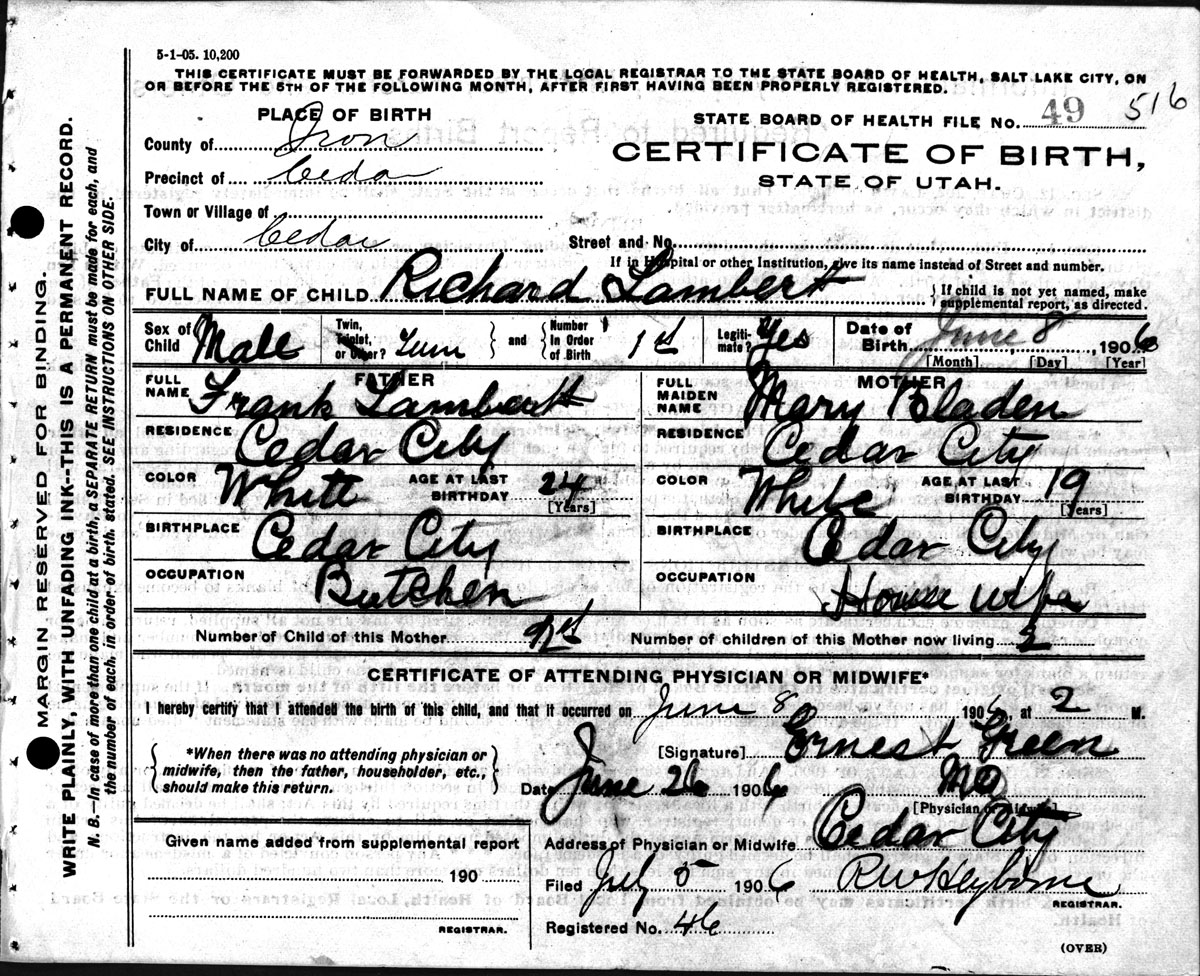 5-1-05. 10,200
THIS CERTIFICATE MUST BE FORWARDED BY THE LOCAL REGISTRAR TO THE STATE BOARD OF HEALTH, SALT LAKE CITY, ON
OR BEFORE THE 5TH OF THE FOLLOWING MONTH, AFTER FIRST HAVING BEEN PROPERLY REGISTERED.
PLACE OF BIRTH
STATE BOARD OF HEALTH FILE NO. 49 516
County of Iron
CERTIFICATE OF BIRTH,
Precinct of Cedar
STATE OF UTAH.
Town or Village of
City of Cedar Street and No.
If in Hospital or other Institution, give its name instead of Street and number.
FULL NAME OF CHILD Richard Lambert } If child is not yet named, make supplemental report, as directed.
Sex of Child Male Twin, Triplet, or Other? } and { Number In Order of Birth 1st Legiti-mate? Yes Date of Birth June 8, 1906
[Month] [Day] [Year]
FATHER MOTHER
FULL NAME Frank Lambert FULL MAIDEN NAME Mary Bladen
RESIDENCE Cedar City RESIDENCE Cedar City
COLOR White AGE AT LAST BIRTHDAY 24 [Years] COLOR White AGE AT LAST BIRTHDAY 19 [Years]
BIRTHPLACE Cedar City BIRTHPLACE Cedar City
OCCUPATION Butcher OCCUPATION House wife
Number of Child of this Mother Number of children of this Mother now living 2
CERTIFICATE OF ATTENDING PHYSICIAN OR MIDWIFE*
I hereby certify that I attended the birth of this child, and that it occurred on June 8 1906, at 2 M.
{ *When there was no attending physician or midwife, then the father, householder, etc., should make this return. }
[Signature] Ernest Green
Date June 26 1906 MD
[Physician or Midwife]
Given name added from supplemental report
Address of Physician or Midwife Cedar City
190
Filed July 5 1906 R W Heyborne
REGISTRAR.
REGISTRAR.
Registered No. 46
(OVER)
MARGIN RESERVED FOR BINDING.
WRITE PLAINLY, WITH UNFADING INK--THIS IS A PERMANENT RECORD.
N. B.--In case of more than one child at a birth, a SEPARATE RETURN must be made for each, and
the number of each, in order of birth, stated. SEE INSTRUCTIONS ON OTHER SIDE.